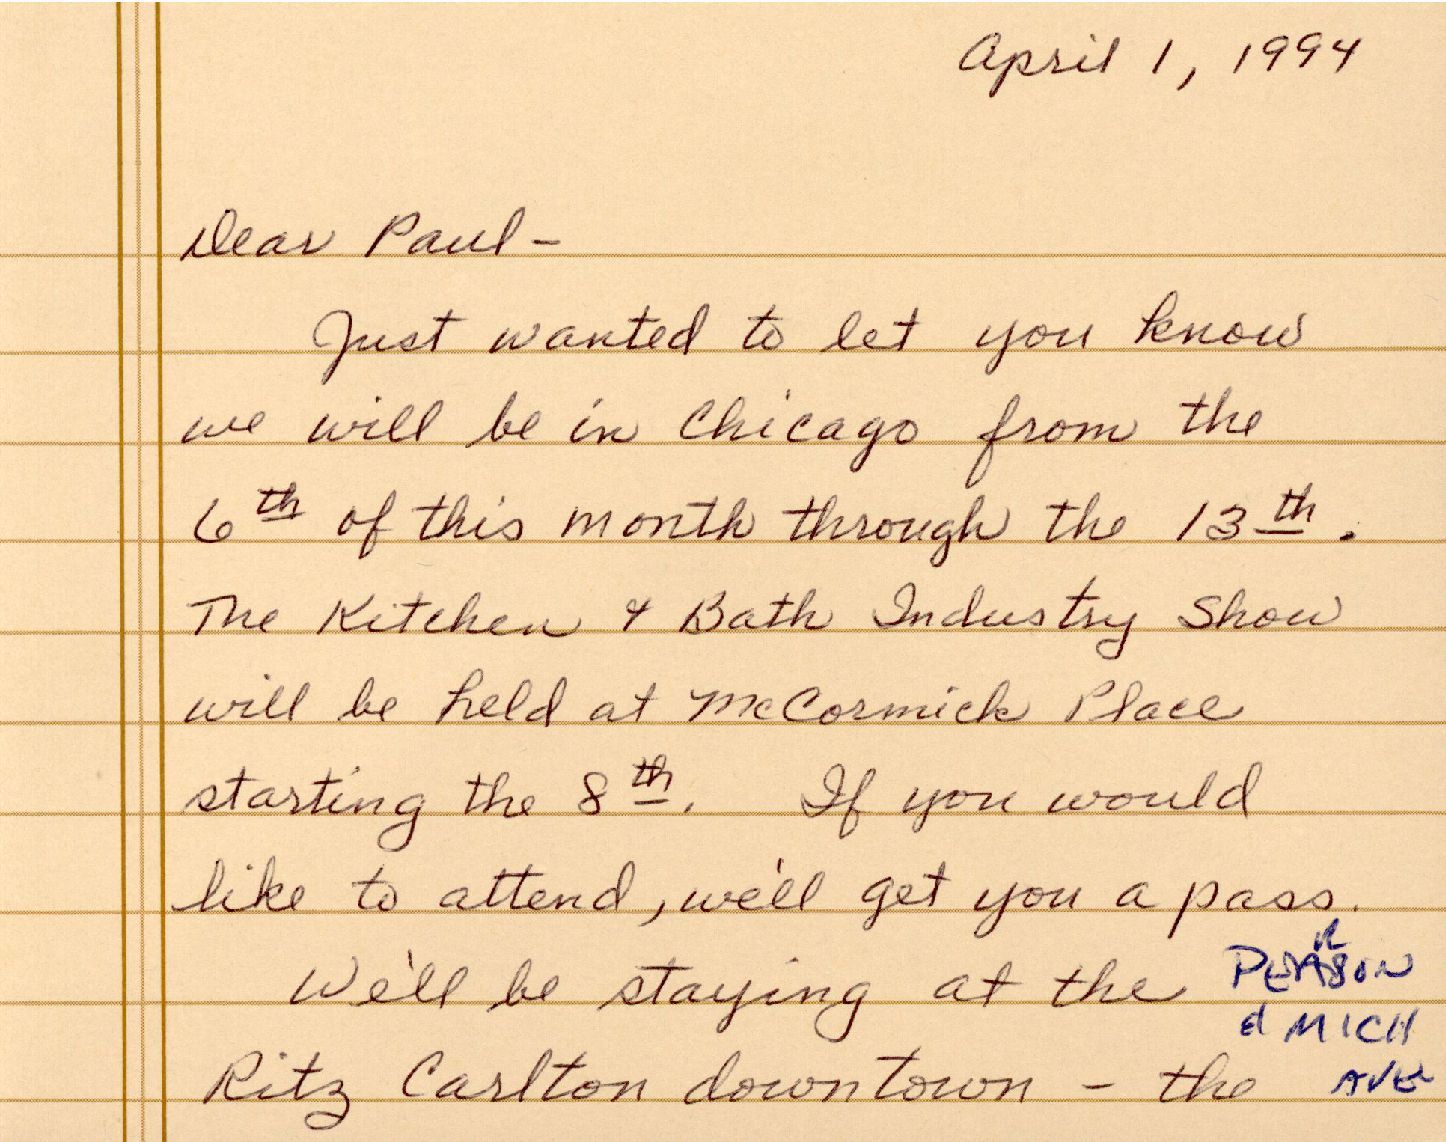 April 1, 1994
Dear Paul -
Just wanted to let you know
we will be in Chicago from the
6th of this month through the 13th.
The Kitchen & Bath Industry Show
will be held at McCormick Place
starting the 8th. If you would
like to attend, we'll get you a pass.
We'll be staying at the
PEARSON
& MICH
AVE
Ritz Carlton downtown - the